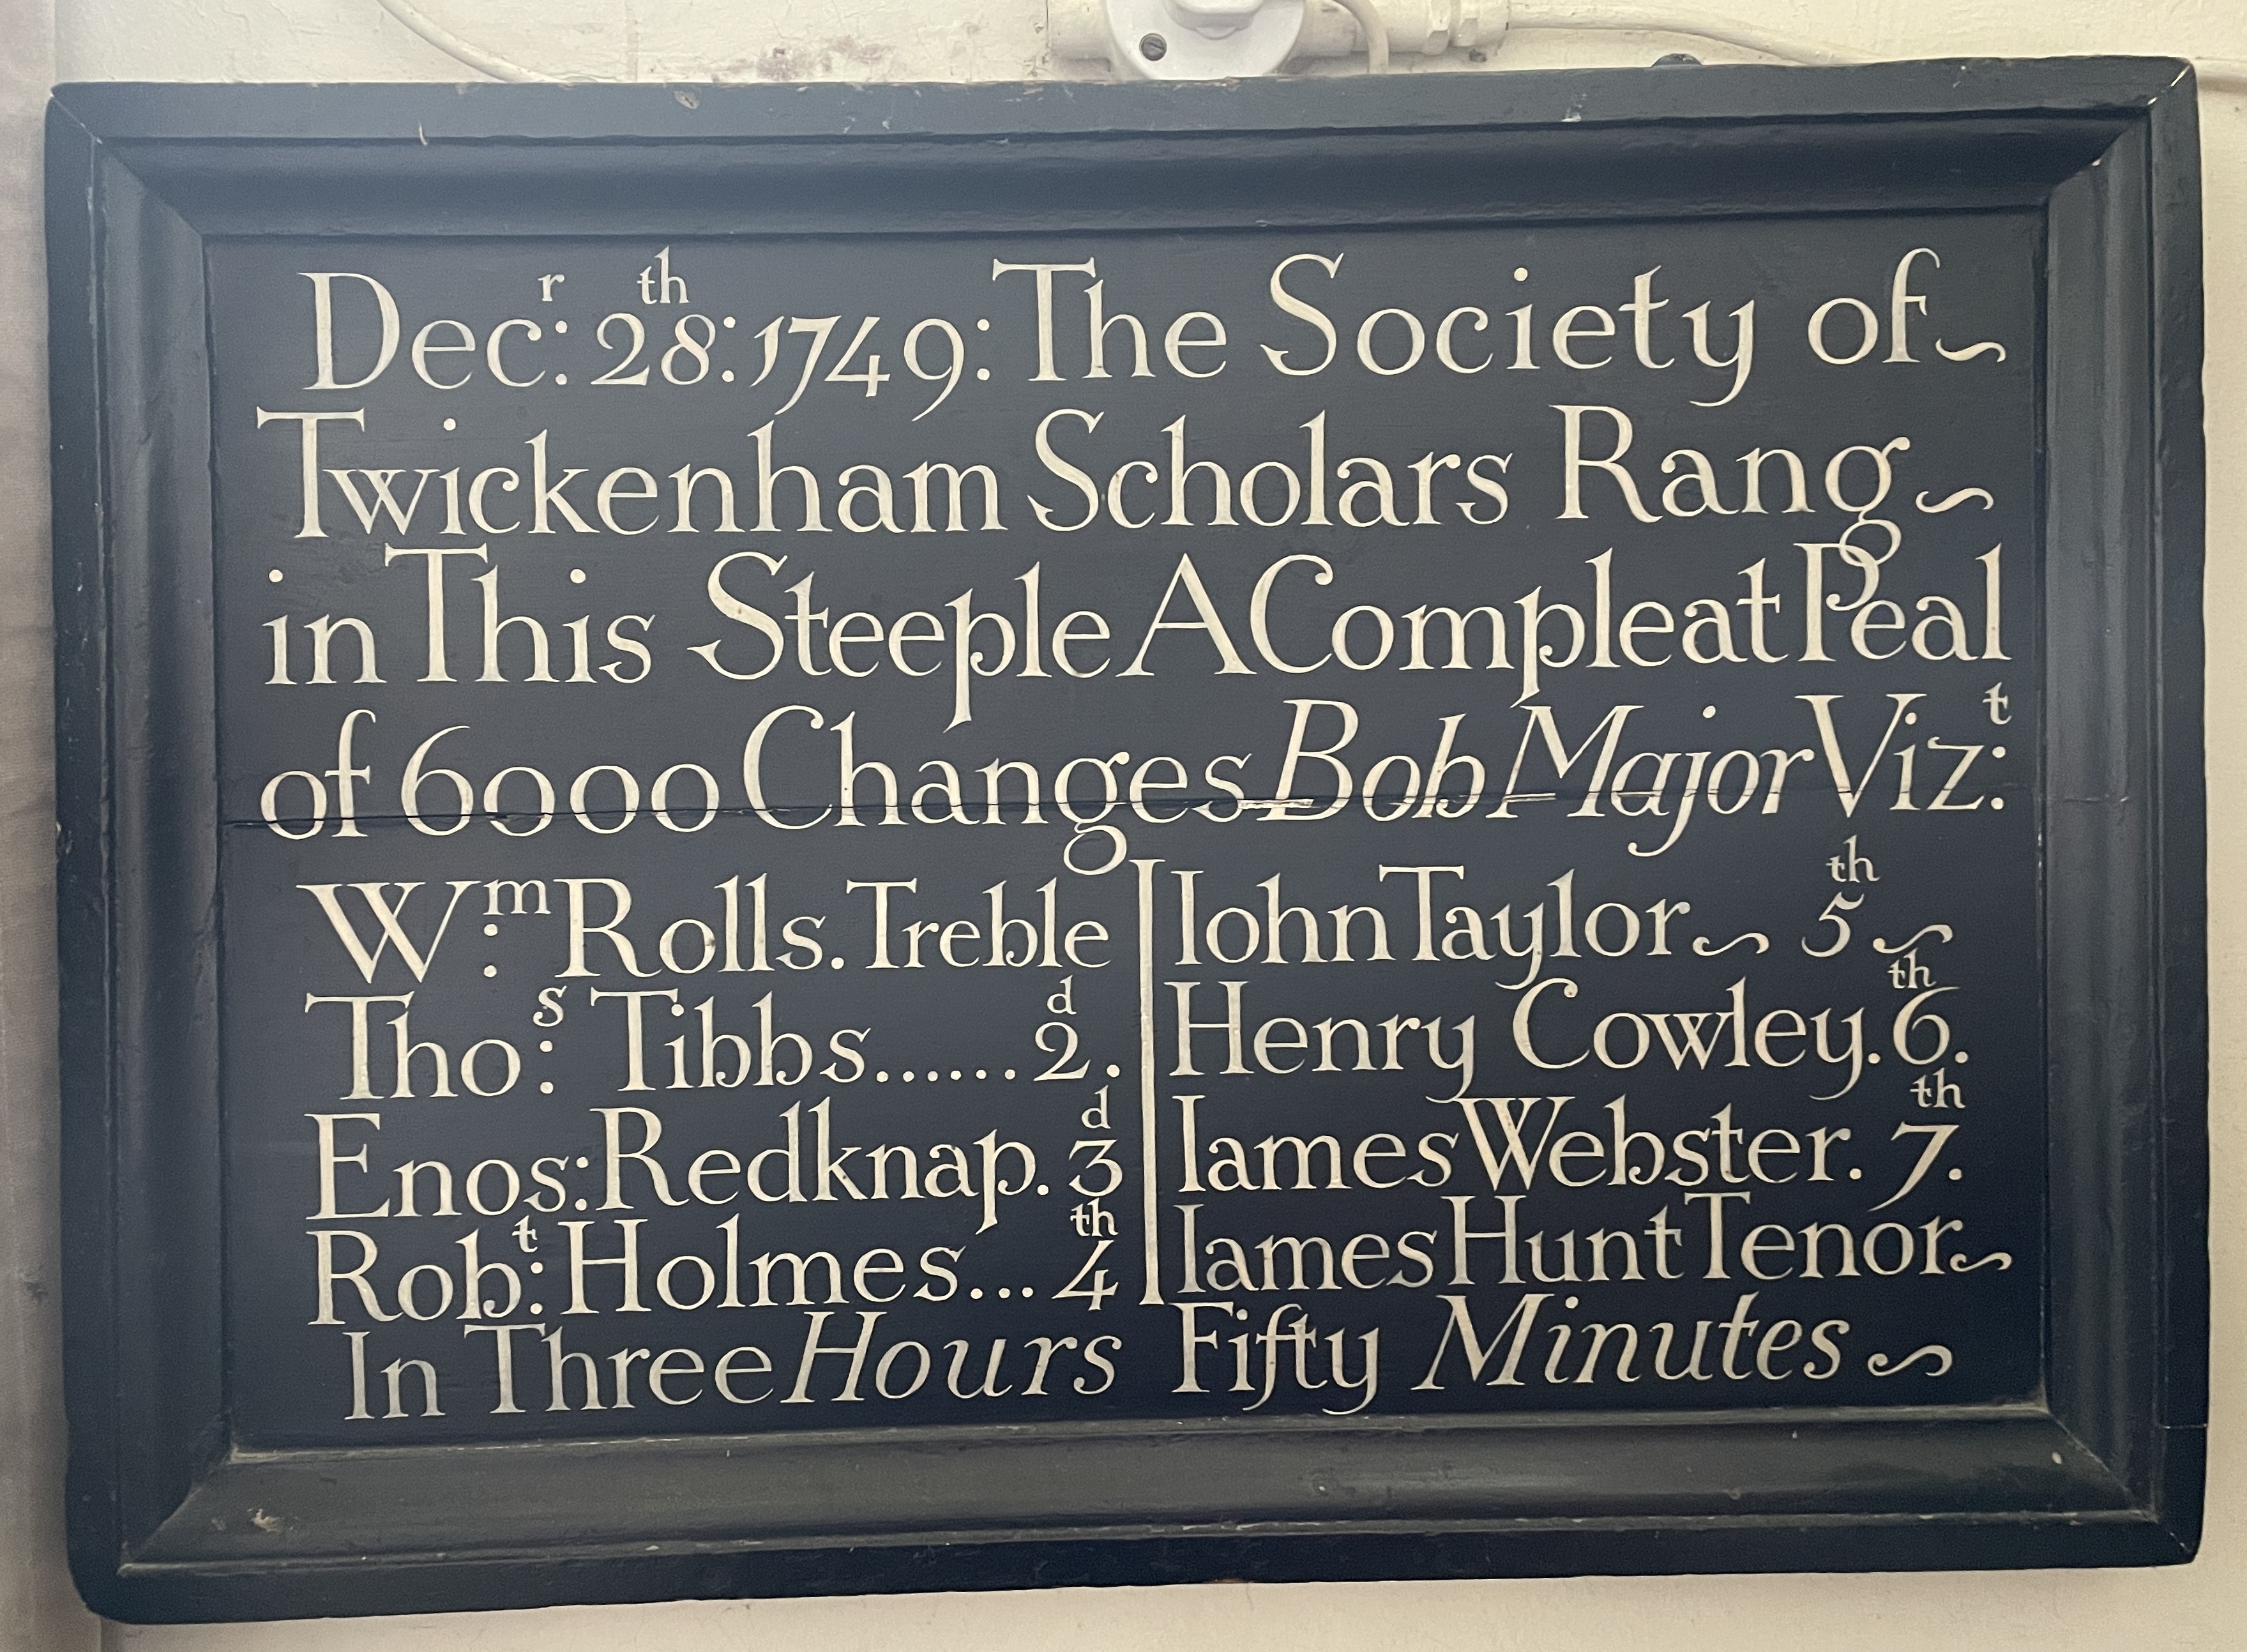 Decʳ: 28ᵗʰ: 1749: The Society of~
Twickenham Scholars Rang~
in This Steeple A Compleat Peal
of 6000 Changes Bob Major Vizᵗ:
Wᵐ: Rolls. Treble
Thoˢ: Tibbs...... 2ᵈ.
Enos: Redknap. 3ᵈ
Robᵗ: Holmes... 4ᵗʰ
Iohn Taylor~ 5ᵗʰ~
Henry Cowley. 6ᵗʰ.
Iames Webster. 7ᵗʰ.
Iames Hunt Tenor~
In Three Hours Fifty Minutes~